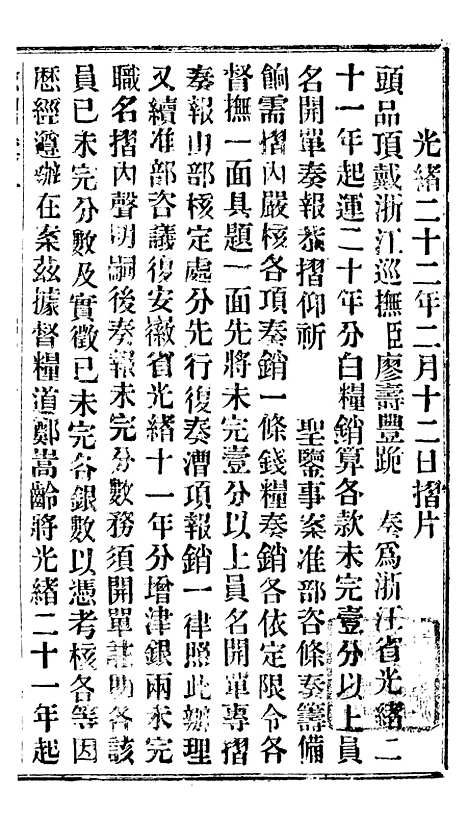 光緒二十二年二月十二日摺片
頭品頂戴浙江巡撫臣廖壽豐跪 奏爲浙江省光緒二
十一年起運二十年分白糧銷算各款未完壹分以上員
名開單奏報恭摺仰祈 聖鑒事案准部咨條奏籌備
餉需摺內嚴核各項奏銷一條錢糧奏銷各依定限令各
督撫一面具題一面先將未完壹分以上員名開單專摺
奏報由部核定處分先行復奏漕項報銷一律照此辦理
又續准部咨議復安徽省光緒十一年分增津銀兩未完
職名摺內聲明嗣後奏報未完分數務須開單註明各該
員已未完分數及實徵已未完各銀數以憑考核各等因
歷經遵辦在案茲據督糧道鄭嵩齡將光緒二十一年起